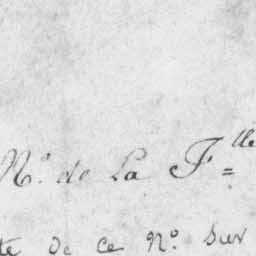 N.º de La F.lle
te de ce Nº. Sur